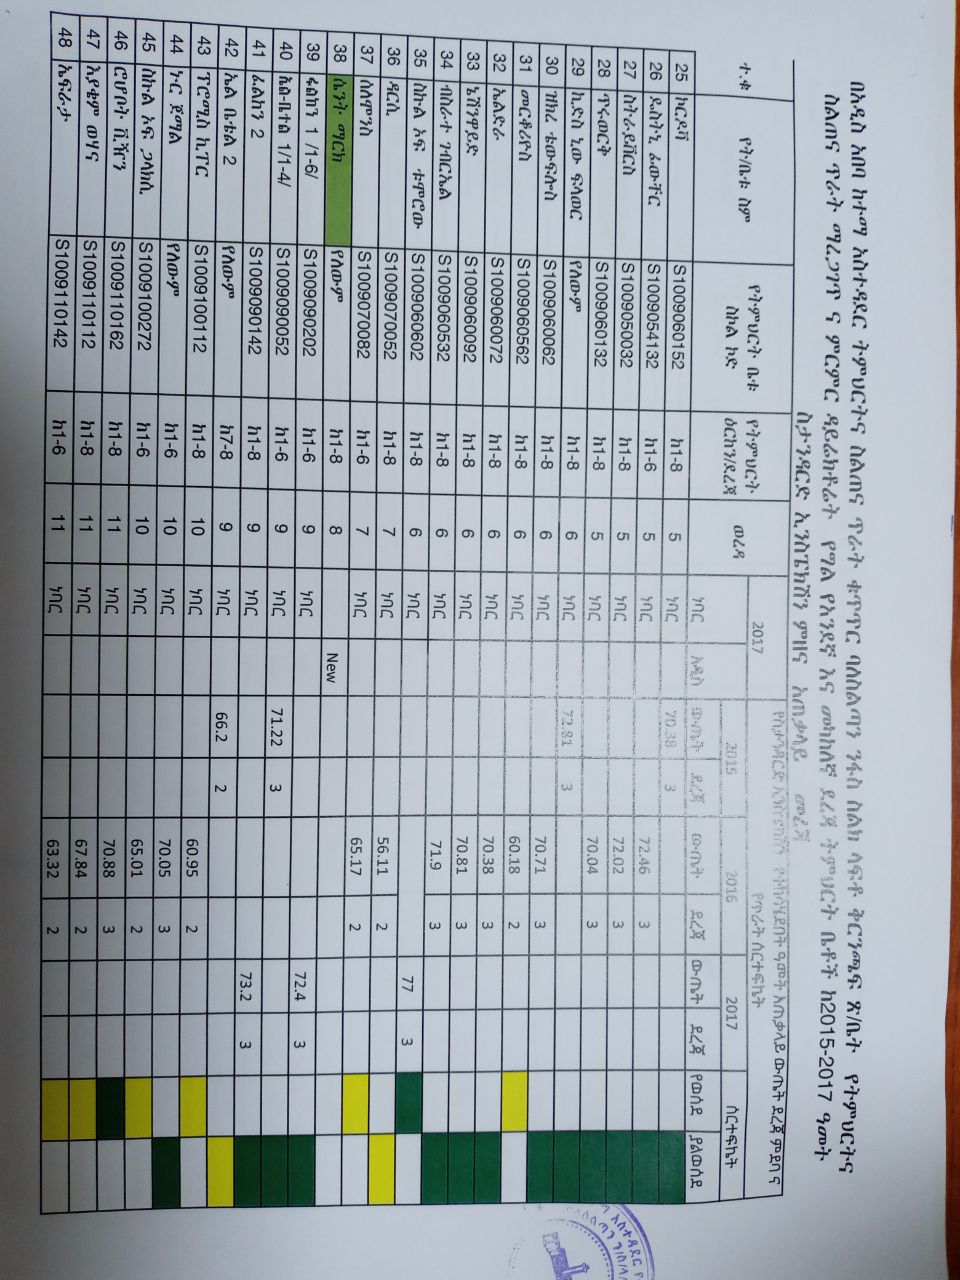 በአዲስ አበባ ከተማ አስተዳደር ትምህርትና ስልጠና ጥራት ቁጥጥር ባለስልጣን ንፋስ ስልክ ላፍቶ ቅርንጫፍ ጽ/ቤት የትምህርትና
ስልጠና ጥራት ማረጋገጥ ና ምርምር ዳይሬክቶሬት የግል የአንደኛ እና መከከለኛ ደረጃ ትምህርት ቤቶች ከ2015-2017 ዓመት
ስታንዳርድ ኢንስፔክሽን ምዘና አጠቃላይ መረጃ
ተ.ቁ የት/ቤቱ ስም የትምህርት ቤቱ ስኩል ኮድ የትምህርት እርከን/ደረጃ ወረዳ 2017 የስታንዳርድ ኢንስፔክሽን የተካሄደበት ዓመት አጠቃላይ ውጤት ደረጃ ምደባ ና
የጥራት ሰርተፍኬት
2015 2016 2017 ሰርተፍኬት
ነባር አዲስ ውጤት ደረጃ ውጤት ደረጃ ውጤት ደረጃ የወሰደ ያልወሰደ
25 ኮርዶቫ S1009060152 ከ1-8 5 ነባር 70.38 3
26 ደስትኒ ፊውቸር S1009054132 ከ1-6 5 ነባር 72.46 3
27 S1009050032 ከ1-8 5 ነባር 72.02 3
28 ጥሩወርቅ S1009060132 ከ1-8 5 ነባር 70.04 3
29 ኪድስ ኒው ፍላወር የለውም ከ1-8 6 ነባር 72.81 3
30 ዝክረ ቴውፍሎስ S1009060062 ከ1-8 6 ነባር 70.71 3
31 መርቆሪዮስ S1009060562 ከ1-8 6 ነባር 60.18 2
32 ኤልድራ S1009060072 ከ1-8 6 ነባር 70.38 3
33 ኤሽንዋይድ S1009060092 ከ1-8 6 ነባር 70.81 3
34 ብስራተ ገብርኤል S1009060532 ከ1-8 6 ነባር 71.9 3
35 ስኩል ኦፍ ቱሞሮው S1009060602 ከ1-8 6 ነባር 77 3
36 ዳርሲ S1009070052 ከ1-8 7 ነባር 56.11 2
37 ሰለሞንስ S1009070082 ከ1-6 7 ነባር 65.17 2
38 ሴንት ማርክ የለውም ከ1-8 8 New
39 ፋልከን 1 /1-6/ S1009090202 ከ1-6 9 ነባር 72.4 3
40 ኤል-ቤተል 1/1-4/ S1009090052 ከ1-6 9 ነባር 71.22 3
41 ፊልከን 2 S1009090142 ከ1-8 9 ነባር 73.2 3
42 ኤል ቤቴል 2 የለውም ከ7-8 9 ነባር 66.2 2
43 ፕሮሚስ ኪፐር S1009100112 ከ1-8 10 ነባር 60.95 2
44 ኑር ጀማል የለውም ከ1-6 10 ነባር 70.05 3
45 ስኩል ኦፍ ጋላክሲ S1009100272 ከ1-6 10 ነባር 65.01 2
46 ሮሆቦት ቪዥን S10091110162 ከ1-8 11 ነባር 70.88 3
47 እያቄም ወሃና S10091110112 ከ1-8 11 ነባር 67.84 2
48 ኤፍራታ S10091110142 ከ1-6 11 ነባር 63.32 2